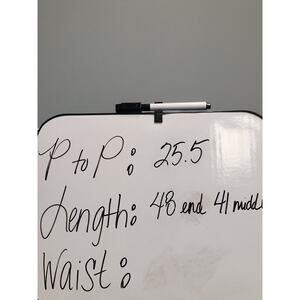 P to P: 25.5
Length: 48 end 41 midd
Waist: